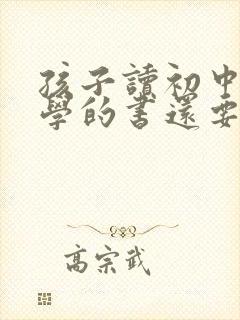 孩子讀初中
學的書還要
高宗武